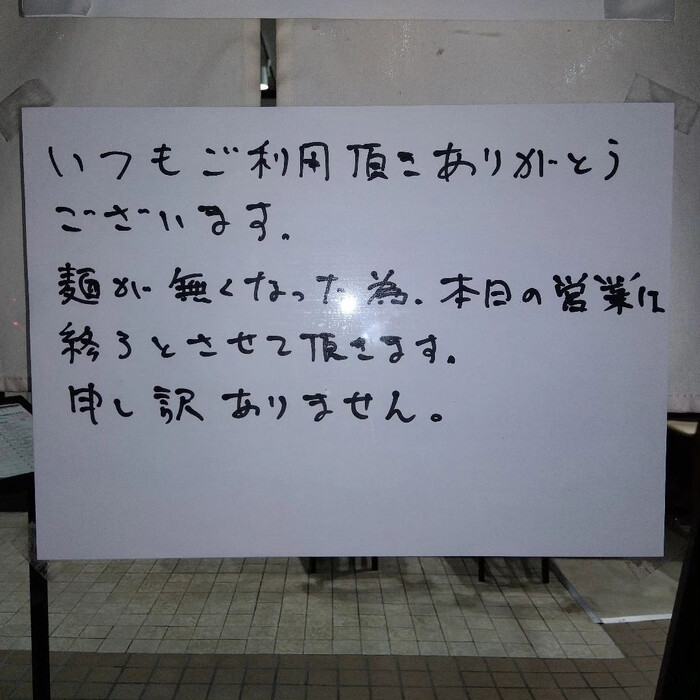 いつもご利用頂きありがとう
ございます。
麺が無くなった為、本日の営業は
終了とさせて頂きます。
申し訳ありません。